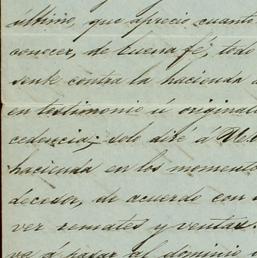 último, que aprecio cuanto
conocer, de buena fé; todo
sente contra la hacienda
en testimonio ú original
cedencia; solo diré á
hacienda en los momento
decesor, de acuerdo con
ver remates y ventas.
va á pasar al dominio